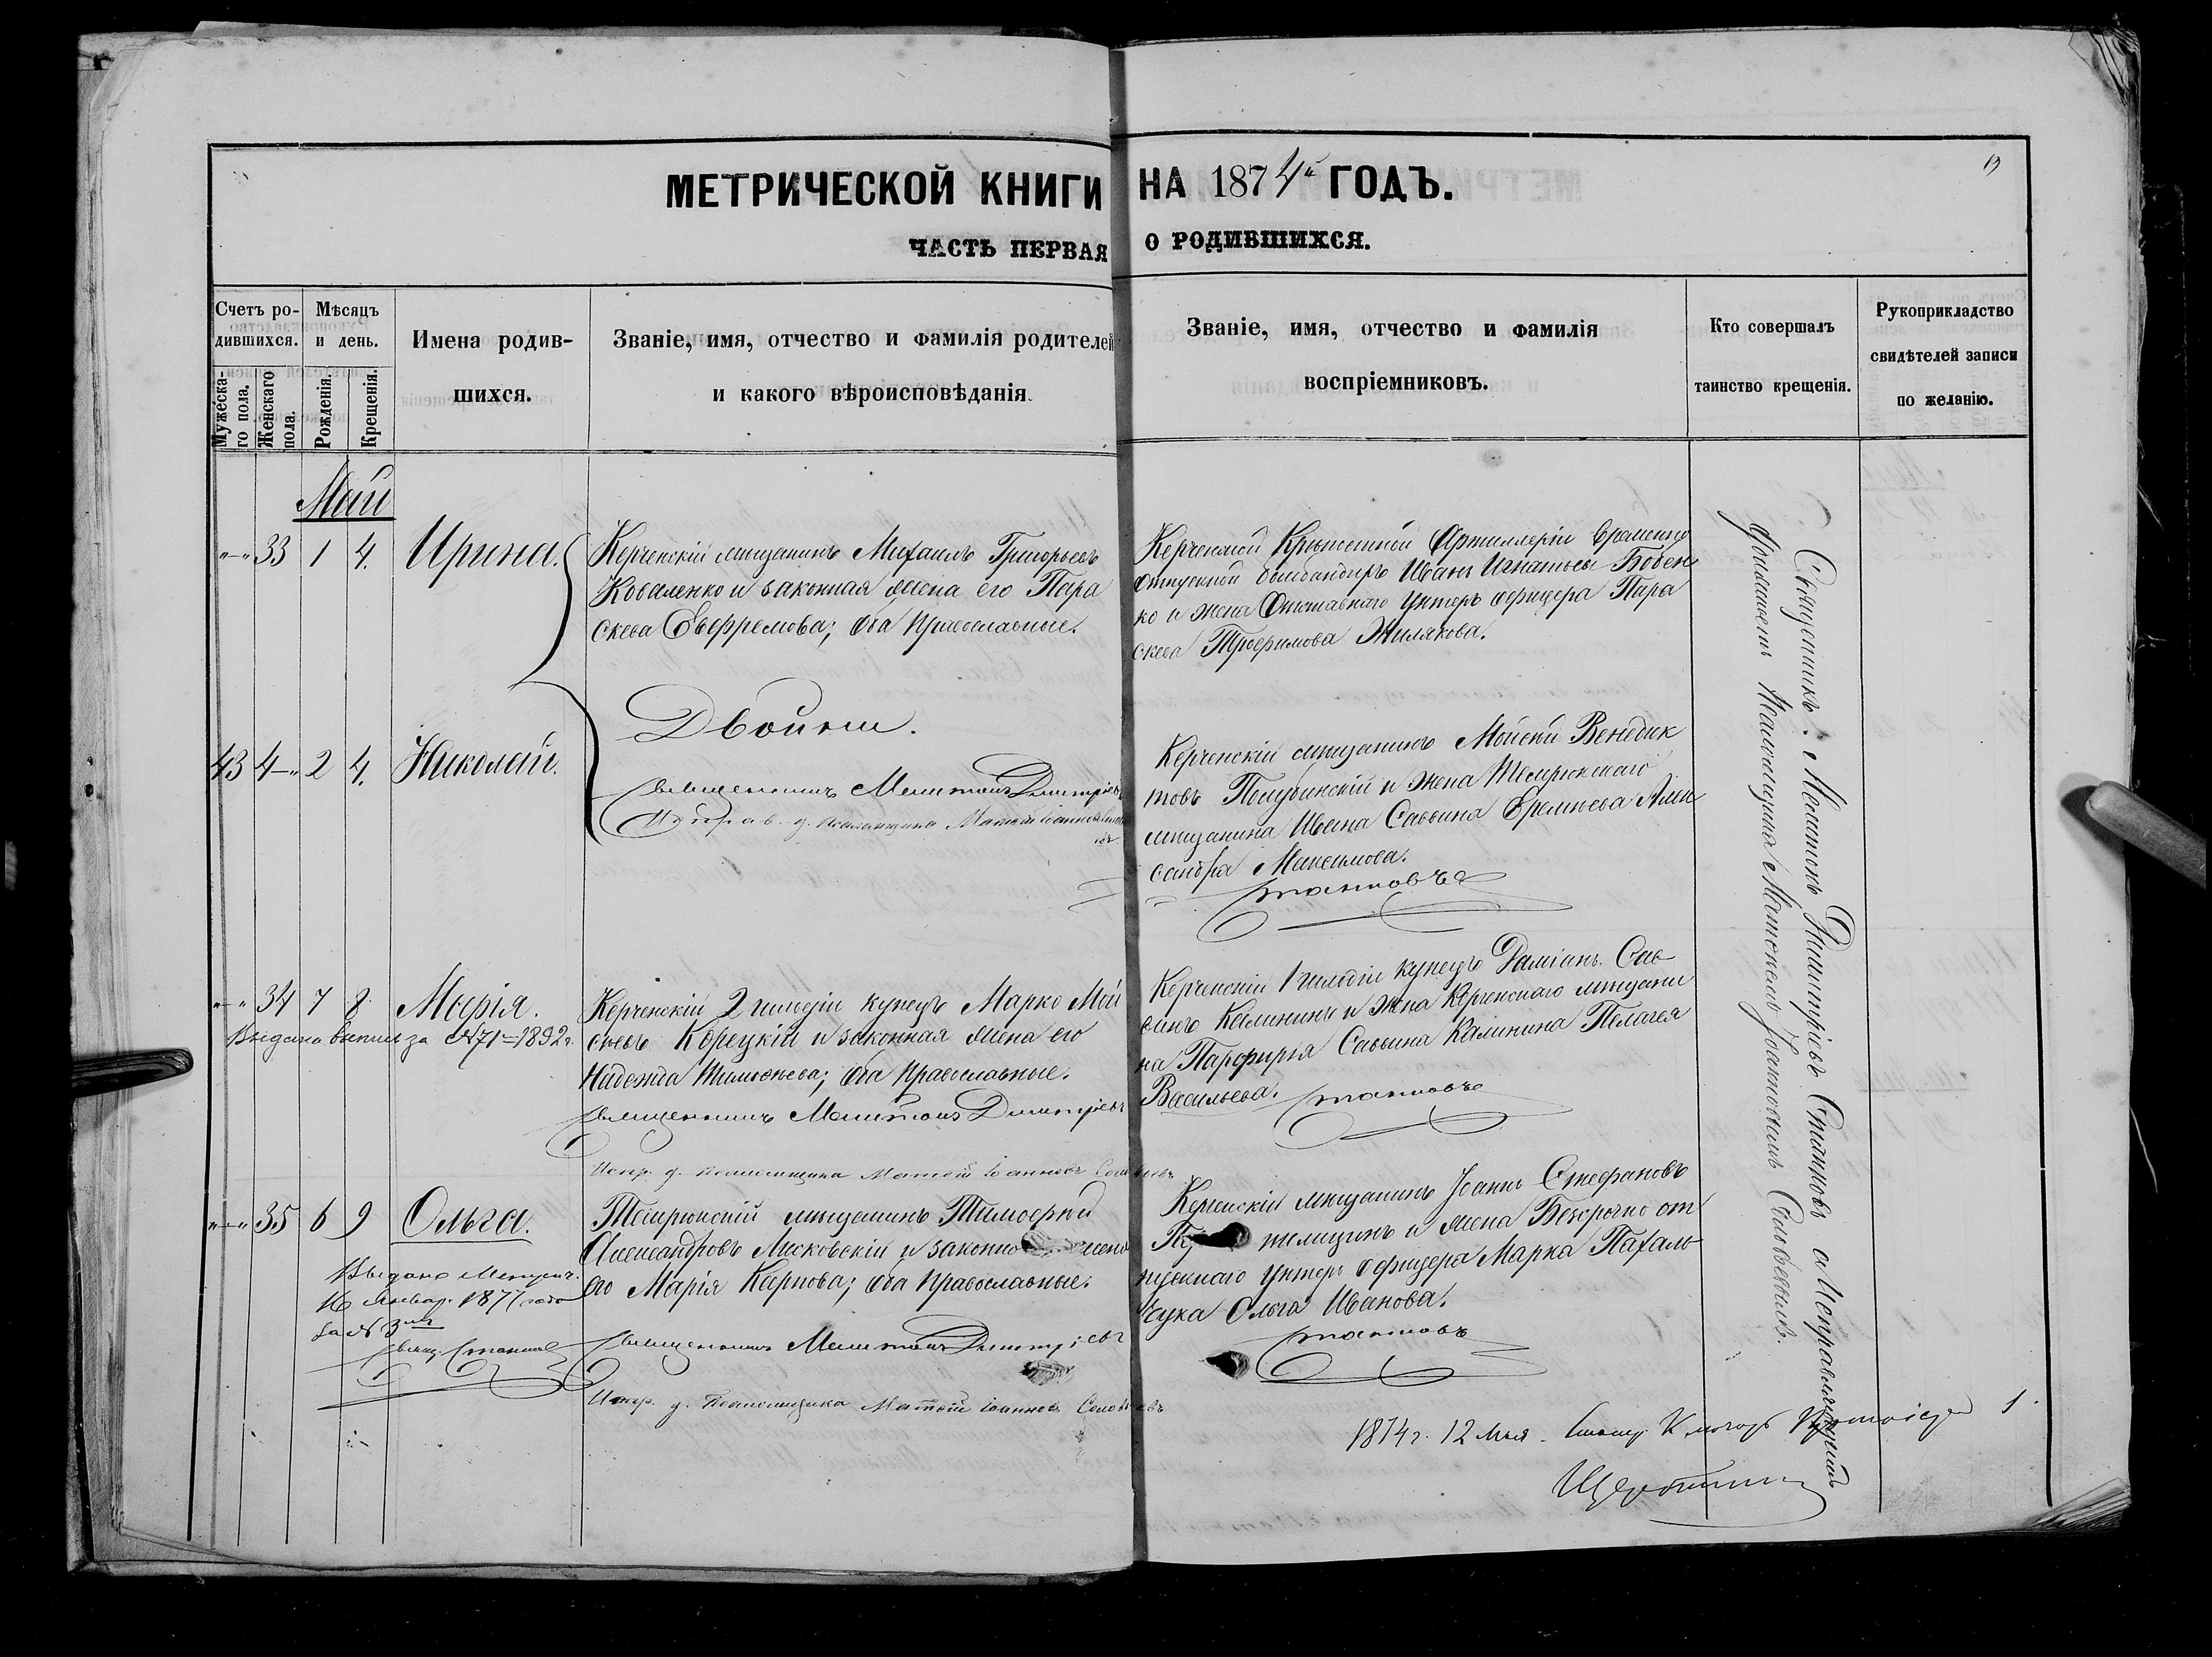 МЕТРИЧЕСКОЙ КНИГИ НА 1874й ГОДЪ.
19
ЧАСТЬ ПЕРВАЯ О РОДИВШИХСЯ.
Счетъ ро-
дившихся.
Мужеска-
го пола.
Женскаго
пола.
Мѣсяцъ
и день.
Рожденія.
Крещенія.
Имена родив-
шихся.
Званіе, имя, отчество и фамилія родителей
и какого вѣроисповѣданія.
Званіе, имя, отчество и фамилія
воспріемниковъ.
Кто совершалъ
таинство крещенія.
Рукоприкладство
свидѣтелей записи
по желанію.
Май
"—" 33 1 4. Ирина.
Керченскій мѣщанинъ Михаилъ Григорьевъ
Коваленко и законная жена его Пара
скева Евфремова; оба Православные.
Керченской Крѣпостной Артиллеріи временно
отпускной бомбандиръ Иванъ Игнатьевъ Бовен
ко и жена Отставнаго Унтеръ офицера Пара
скева Трофимова Жилякова.
Двойни.
43 4 —" 2 4. Николай.
Священникъ Мелитонъ Димитріевъ
Исправ. д. псаломщика Матөій Іоанновъ
Керченскій мѣщанинъ Мойсей Венедик
товъ Полубинскій и жена Темрюкскаго
мѣщанина Ивана Саввина Еремѣева Алек
сандра Максимова.
Станковъ
"—" 34 7 8. Марія.
Выдана выпись за №71=1892г.
Керченскій 2 гильдіи купецъ Марко Мой
сѣевъ Корецкій и законная жена его
Надежда Тимоөеева; оба Православные.
Священникъ Мелитонъ Димитріевъ
Испр. д. псаломщика Матөій Іоанновъ Соловьевъ
Керченскій 1 гильдіи купецъ Даміанъ Сав
винъ Калининъ и жена Керченскаго мѣщани
на Парфирія Саввина Калинина Пелагея
Васильева. Станковъ
"—" 35 6 9 Ольга.
Выдано Метрич.
16 Январ. 1877 года
за № 3мъ
Свящ. Станков
Темрюкскій мѣщанинъ Тимоөей
Александровъ Лисковскій и законно жена
его Марія Карпова; оба Православные.
Священникъ Мелитонъ Димитріевъ
Испр. д. Псаломщика Матөій Іоанновъ Соловьевъ
Керченскій мѣщанинъ Іоаннъ Стефановъ
и жена Безсрочно от
пускнаго Унтеръ офицера Марка Пахаль
чука Ольга Иванова.
Станковъ
Священникъ: Мелитонъ Димитріевъ Станковъ съ Исправляющимъ
должность Псаломщика Матөеемъ Іоанновымъ Соловьевымъ.
1874г. 12 Мая.